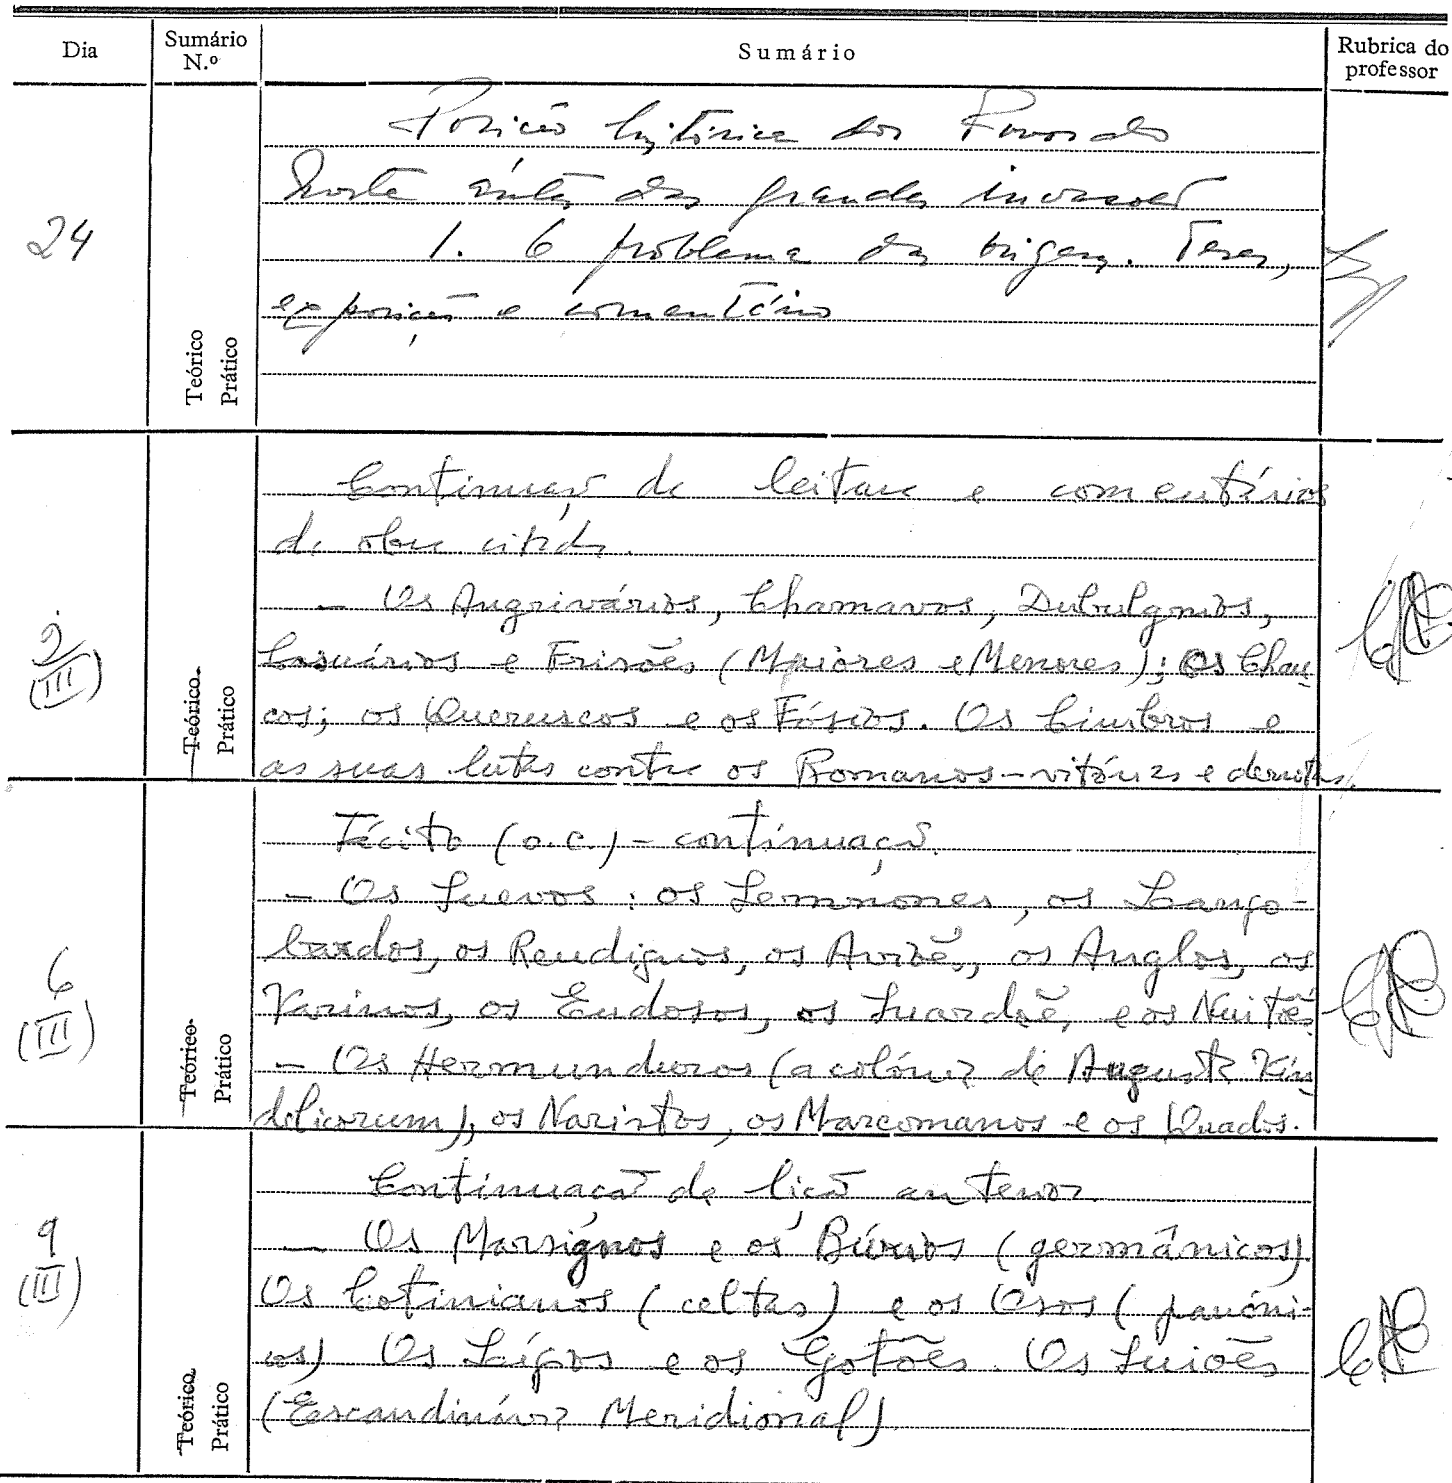 Dia
Sumário
N.º
Sumário
Rubrica do
professor
24
Teórico
Prático
Posição histórica dos Povos do
Norte antes das grandes invasões
1. O problema das origens. Teses,
exposição e comentário
2
(III)
Teórico
Prático
Continuação da leitura e comentários
da obra citada.
- Os Angrivários, Chamavos, Dulgubnios,
Casuários e Frisões (Maiores e Menores); os Chau-
cos; os Queruscos e os Fósios. Os Cimbros e
as suas lutas contra os Romanos - vitórias e derrotas.
6
(III)
Teórico
Prático
Tácito (o.c.) - continuação.
- Os Suevos: os Semnones, os Lango-
bardos, os Reudignos, os Aviões, os Anglos, os
Varinos, os Eudosos, os Suardões e os Nuitões
- Os Hermunduros (a colónia de Augusta Vin-
delicorum), os Naristos, os Marcomanos e os Quados.
9
(III)
Teórico
Prático
Continuação da lição anterior.
- Os Marsignos e os Búrios (germânicos).
Os Cotinianos (celtas) e os Osos (panóni-
os) Os Lígios e os Gotões. Os Suiões
(Escandinávia Meridional)